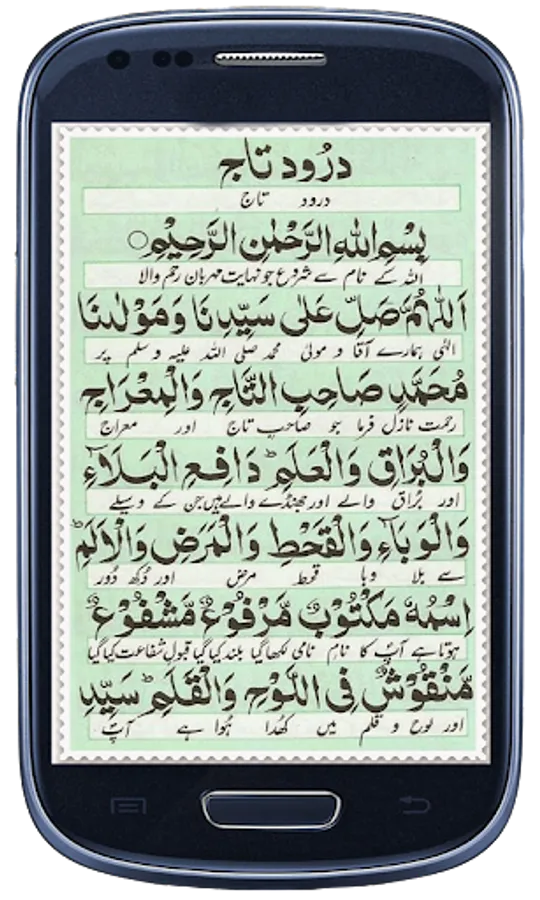 درُود تاج
درود تاج
بِسْمِ اللهِ الرَّحْمٰنِ الرَّحِيْمِ
اللہ کے نام سے شروع جو نہایت مہربان رحم والا
اَللّٰهُمَّ صَلِّ عَلٰى سَيِّدِنَا وَمَوْلٰىنَا
الٰہی ہمارے آقا و مولیٰ محمد صلی اللہ علیہ وسلم پر
مُحَمَّدٍ صَاحِبِ التَّاجِ وَالْمِعْرَاجِ
رحمت نازل فرما جو صاحب تاج اور معراج
وَالْبُرَاقِ وَالْعَلَمِ ط دَافِعِ الْبَلَاءِ
اور بُراق والے اور جھنڈے والے ہیں جن کے وسیلے
وَالْوَبَاءِ وَالْقَحْطِ وَالْمَرَضِ وَالْاَلَمِ ط
سے بلا وبا قحط مرض اور دُکھ دُور
اِسْمُهٗ مَكْتُوْبٌ مَّرْفُوْعٌ مَّشْفُوْعٌ
ہوتا ہے آپؐ کا نام نامی لکھا گیا بلند کیا گیا قبول شفاعت کیا گیا
مَّنْقُوْشٌ فِى اللَّوْحِ وَالْقَلَمِ ط سَيِّدِ
اور لوح و قلم میں کھُدا ہُوا ہے آپؐ